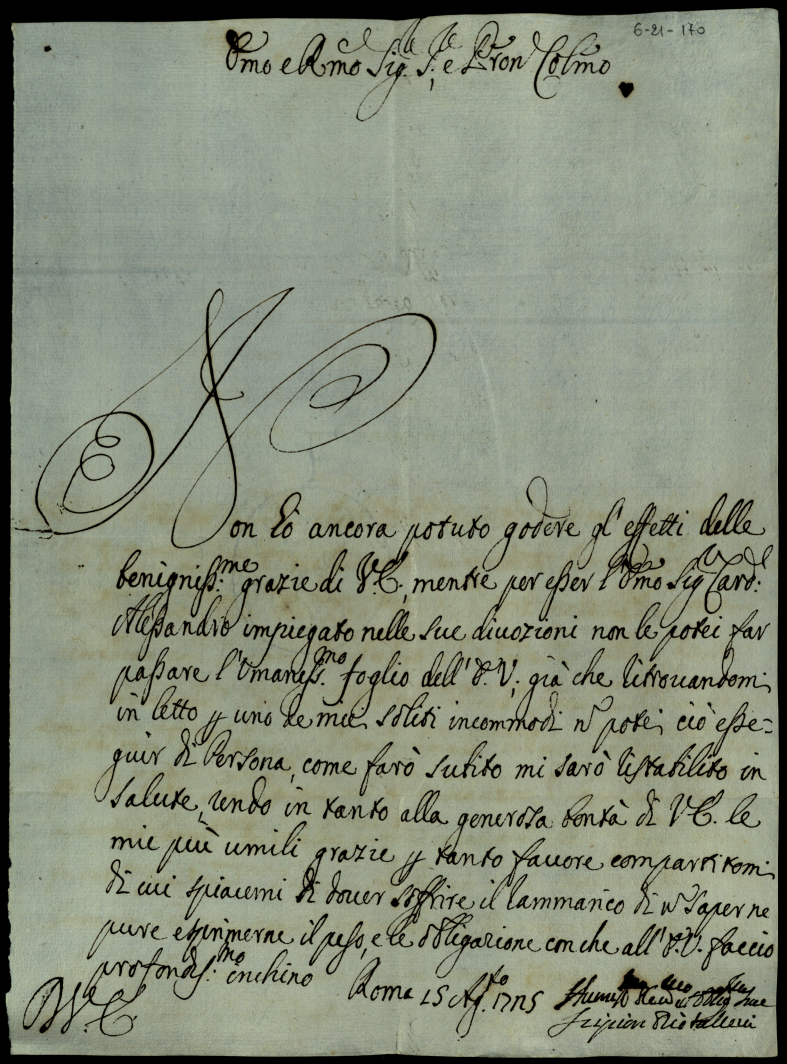 6-21-170
Emo e Rmo Sig. S. e Pron Colmo
Non hò ancora potuto godere gl'effetti delle
benigniss:me grazie di V.E., mentre per esser l'Emo Sig Card:
Alessandro impiegato nelle sue diuozioni non le potei far
passare l'Umaniss:mo foglio dell'E.V., già che ritrouandomi
in letto p uno de miei soliti incommodi nō potei ciò esse=
guir di Persona, come farò subito mi sarò ristabilito in
salute, rendo in tanto alla generosa bontà di V.E. le
mie più umili grazie p tanto fauore compartitomi
di cui spiacemi di douer soffrire il rammarico di nō saper ne
pure esprimerne il peso, e le obligazione con che all'E.V. faccio
profondiss:mo inchino Roma 15 Ag.to